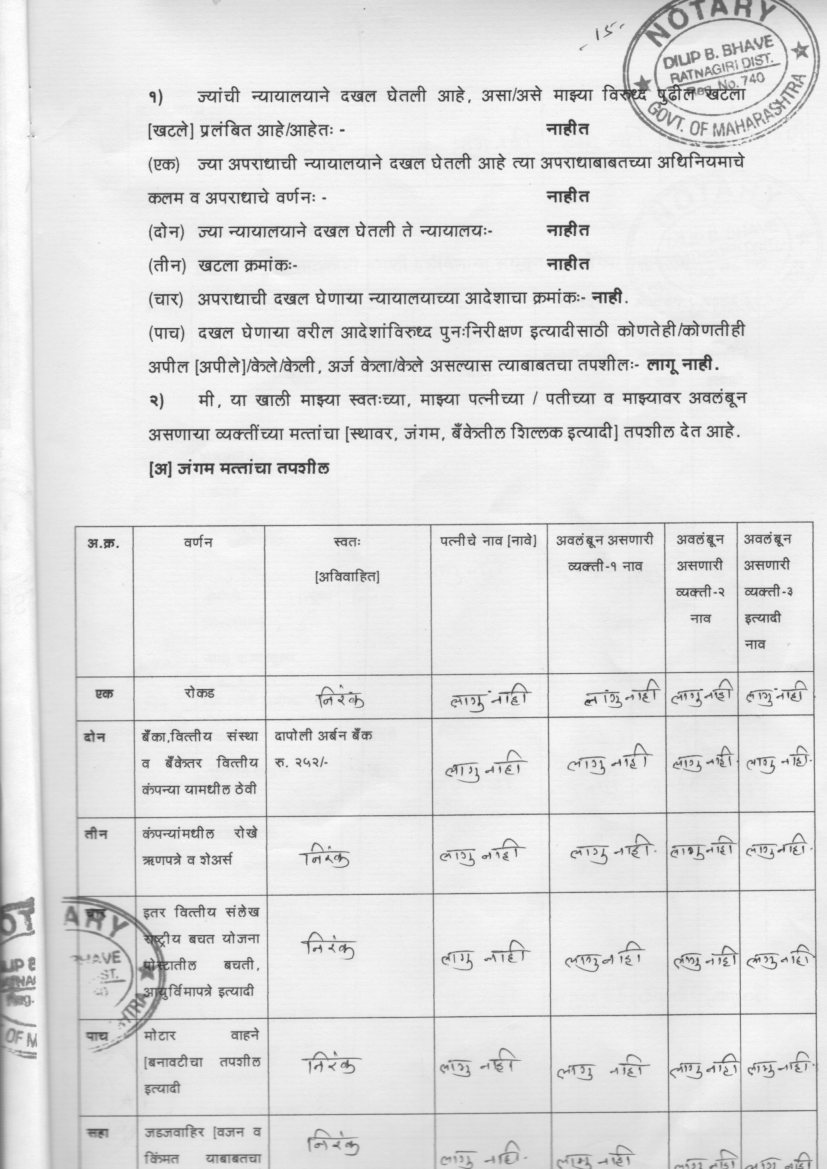 -15-
NOTARY
DILIP B. BHAVE
RATNAGIRI DIST.
Reg. No. 740
GOVT. OF MAHARASHTRA
१) ज्यांची न्यायालयाने दखल घेतली आहे, असा/असे माझ्या विरुध्द पुढील खटला
[खटले] प्रलंबित आहे/आहेतः - नाहीत
(एक) ज्या अपराधाची न्यायालयाने दखल घेतली आहे त्या अपराधाबाबतच्या अधिनियमाचे
कलम व अपराधाचे वर्णनः - नाहीत
(दोन) ज्या न्यायालयाने दखल घेतली ते न्यायालयः- नाहीत
(तीन) खटला क्रमांकः- नाहीत
(चार) अपराधाची दखल घेणाया न्यायालयाच्या आदेशाचा क्रमांकः- नाही.
(पाच) दखल घेणाया वरील आदेशांविरुध्द पुनःनिरीक्षण इत्यादीसाठी कोणतेही/कोणतीही
अपील [अपीले]/केले/केली, अर्ज केला/केले असल्यास त्याबाबतचा तपशीलः- लागू नाही.
२) मी, या खाली माझ्या स्वतःच्या, माझ्या पत्नीच्या / पतीच्या व माझ्यावर अवलंबून
असणाया व्यक्तींच्या मत्तांचा [स्थावर, जंगम, बँकेतील शिल्लक इत्यादी] तपशील देत आहे.
[अ] जंगम मत्तांचा तपशील
अ.क्र. वर्णन स्वतः पत्नीचे नाव [नावे] अवलंबून असणारी अवलंबून अवलंबून
[अविवाहित] व्यक्ती-१ नाव असणारी असणारी
व्यक्ती-२ व्यक्ती-३
नाव इत्यादी
नाव
एक रोकड निरंक लागु नाही लागु नाही लागु नाही लागु नाही
दोन बँका,वित्तीय संस्था दापोली अर्बन बँक
व बँकेतर वित्तीय रु. २५२/- लागु नाही लागु नाही लागु नाही लागु नाही.
कंपन्या यामधील ठेवी
तीन कंपन्यांमधील रोखे
ऋणपत्रे व शेअर्स निरंक लागु नाही लागु नाही. लागु नाही लागु नाही.
चार इतर वित्तीय संलेख
राष्ट्रीय बचत योजना निरंक लागु नाही लागु नाही लागु नाही लागु नाही
पोस्टातील बचती,
आयुर्विमापत्रे इत्यादी
NOTARY
BHAVE
पाच मोटार वाहने
[बनावटीचा तपशील निरंक लागु नाही लागु नाही लागु नाही लागु नाही.
इत्यादी
सहा जडजवाहिर [वजन व निरंक
किंमत याबाबतचा लागु नाही. लागु नाही लागु नाही लागु नाही